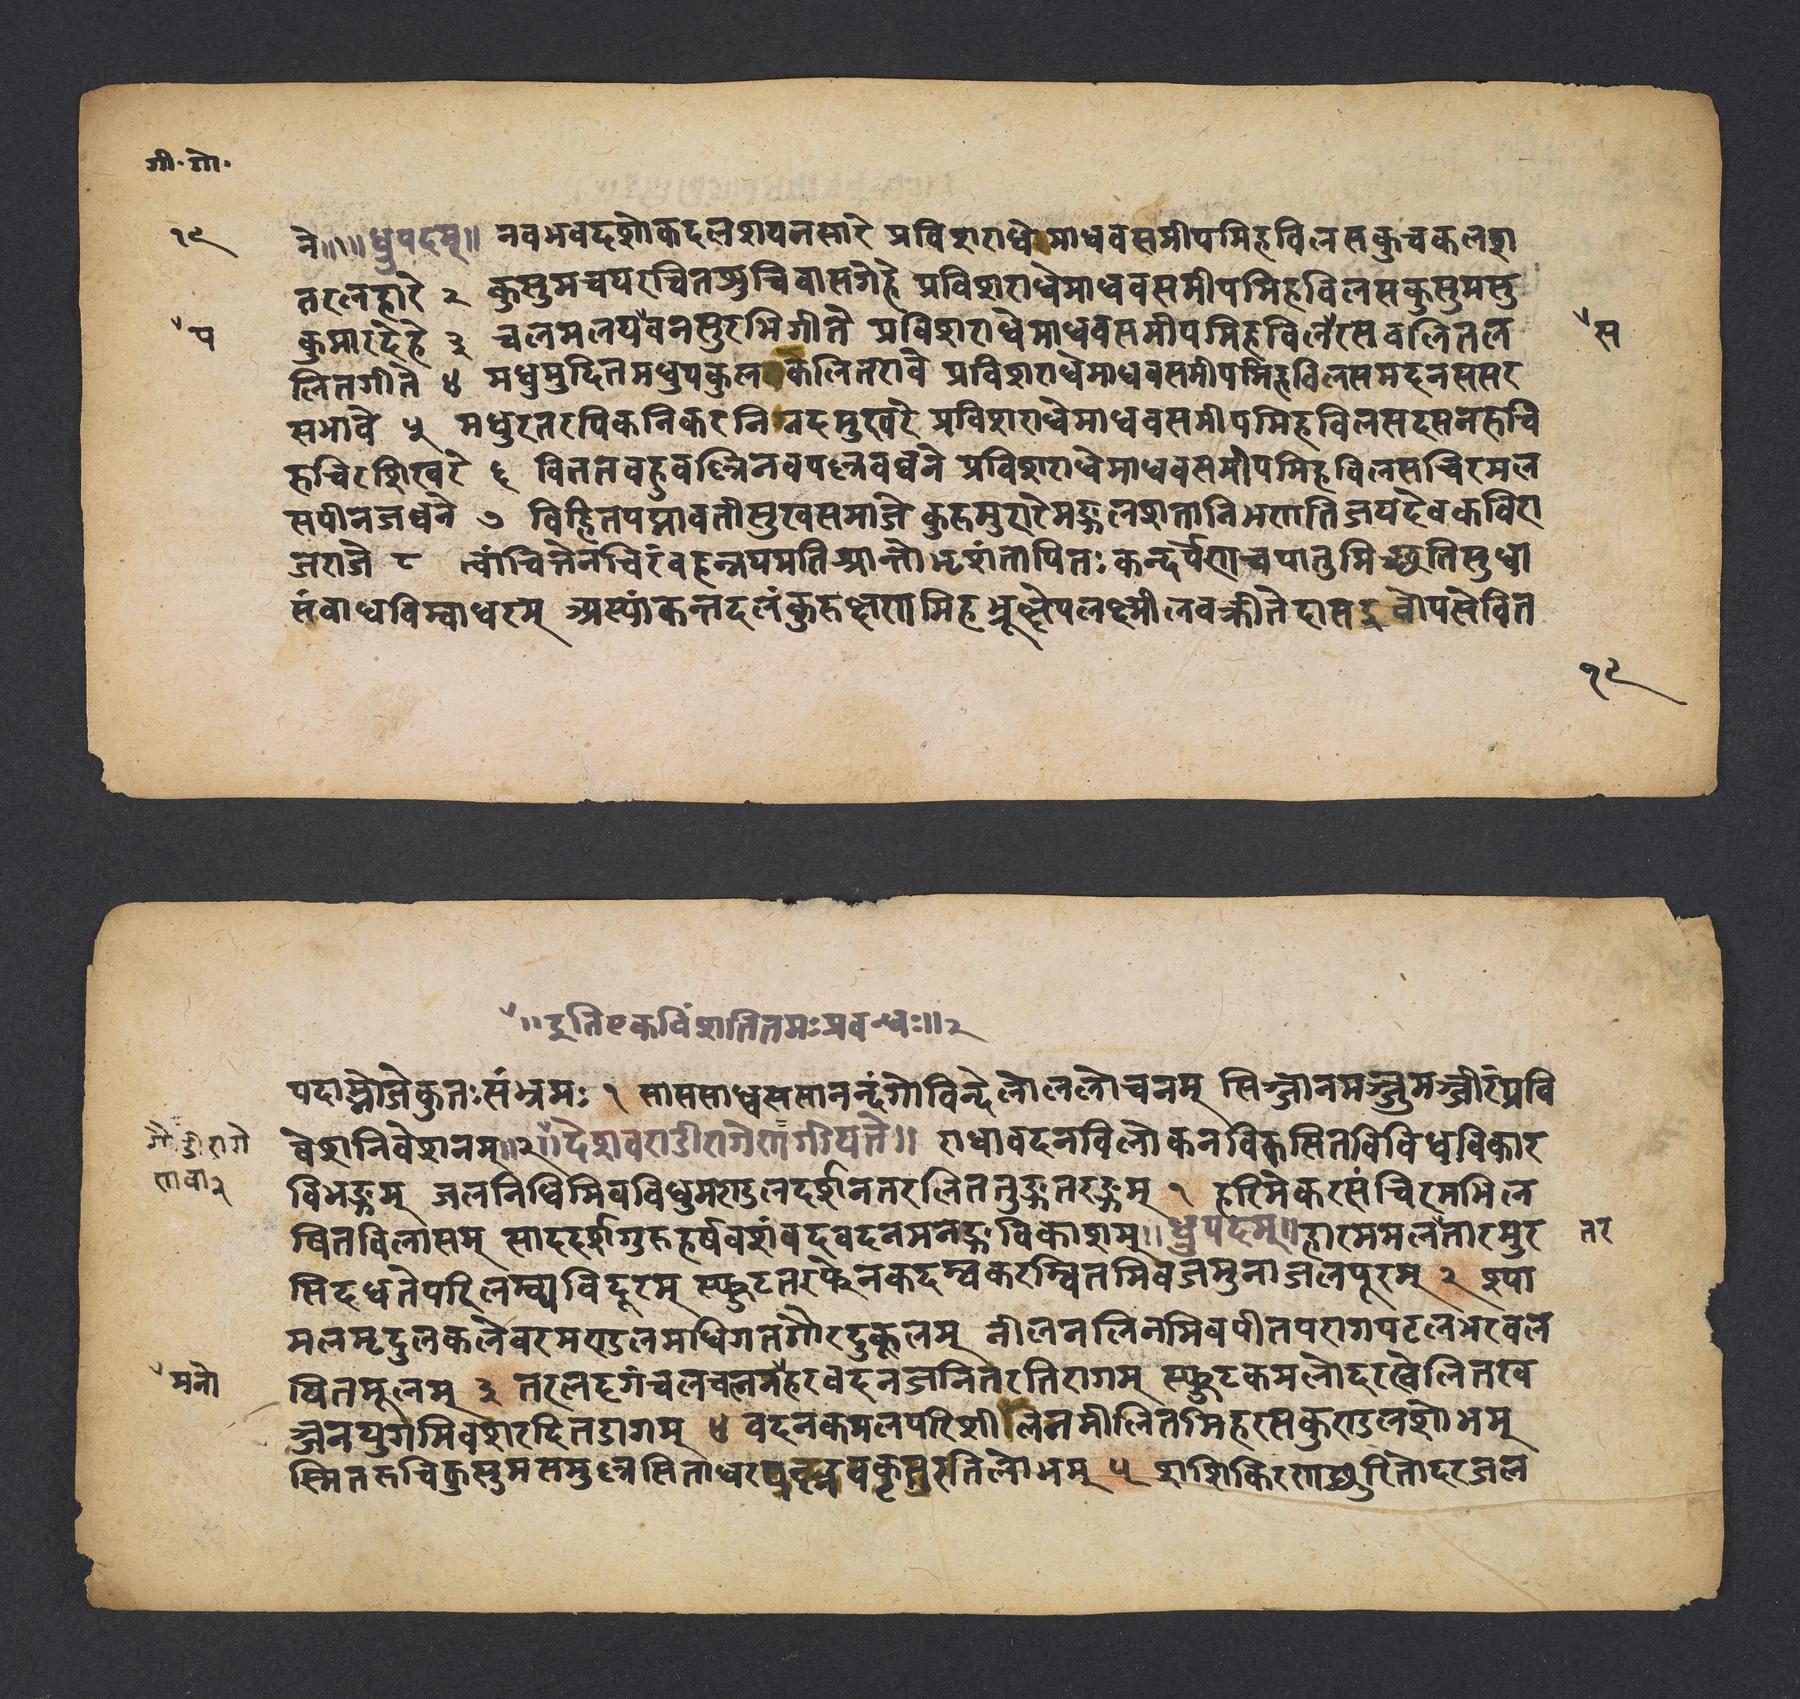 गी॰ गो॰
१९
ने॥१॥ध्रुपदम्॥ नवभवदशोकदलशयनसारे प्रविशराधेमाधवसमीपमिहविलसकुचकलश
तरलहारे २ कुसुमचयरचितशुचिवासगेहे प्रविशराधेमाधवसमीपमिहविलसकुसुमसु
प
कुमारदेहे ३ चलमलयवनसुरभिगीते प्रविशराधेमाधवसमीपमिहविलरसवलितल
स
लितगीते ४ मधुमुदितमधुपकुलकलितरावे प्रविशराधेमाधवसमीपमिहविलसमदनससर
सभावे ५ मधुरतरपिकनिकरनिनदमुखरे प्रविशराधेमाधवसमीपमिहविलसदसनरुचि
रुचिरशिखरे ६ विततवहुवल्लिनवपल्लवघने प्रविशराधेमाधवसमीपमिहविलसचिरमल
सपीनजघने ७ विहितपद्मावतीसुखसमाजे कुरुमुरारेमङ्गलशतानिभणतिजयदेवकविरा
जराजे ८ त्वांचित्तेनचिरंवहन्नयमतिश्रान्तोभृशंतापितः कन्दर्पेणचपातुमिच्छतिसुधा
संवाधविम्वाधरम् अस्याङ्कन्तदलंकुरुक्षणमिहभ्रूक्षेपलक्ष्मीलवक्रीतेदासइवोपसेवित
१९
॥इतिएकविंशतितमःप्रवन्धः॥२
पदाम्भोजेकुतःसंभ्रमः १ साससाध्वससानन्दंगोविन्देलोललोचनम् सिञ्जानमञ्जुमञ्जीरंप्रवि
गौडीरागे
णवा२
वेशनिवेशनम्॥२॥देशवराडीरागेणगीयते॥ राधावदनविलोकनविकसितविविधविकार
विभङ्गम् जलनिधिमिवविधुमण्डलदर्शनतरलिततुङ्गतरङ्गम् १ हरिमेकरसंचिरमभिल
षितविलासम् साददर्शगुरुहर्षवशंवदवदनमनङ्गविकाशम्॥ध्रुपदम्॥हारममलतारमुर
तर
सिदधतंपरिलम्ब्यविदूरम् स्फुटतरफेनकदम्वकरम्वितमिवजमुनाजलपूरम् २ श्या
मलमृदुलकलेवरमण्डलमधिगतगौरदुकूलम् नीलनलिनमिवपीतपरागपटलभरवल
मनो
यितमूलम् ३ तरलदृगंचलचलनहरवदनजनितरतिरागम् स्फुटकमलोदरखेलितख
ञ्जनयुगमिवशरदितडागम् ४ वदनकमलपरिशीलनमीलितमिहरसकुण्डलशोभम्
स्मितरुचिकुसुमसमुल्लसिताधरपल्लवकृतरतिलोभम् ५ शशिकिरणच्छुरितोदरजल